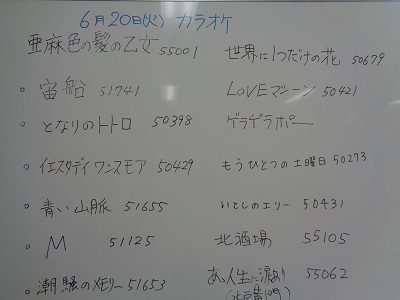 6月20日(火) カラオケ
亜麻色の髪の乙女 55001
世界に1つだけの花 50679
宙船 51741
LOVEマシーン 50421
となりのトトロ 50398
ゲラゲラポー
イエスタデイワンスモア 50429
もうひとつの土曜日 50293
青い山脈 51655
いとしのエリー 50431
M 51125
北酒場 55105
潮騒のメモリー 51653
あゝ人生に涙あり 55062
(水戸黄門)